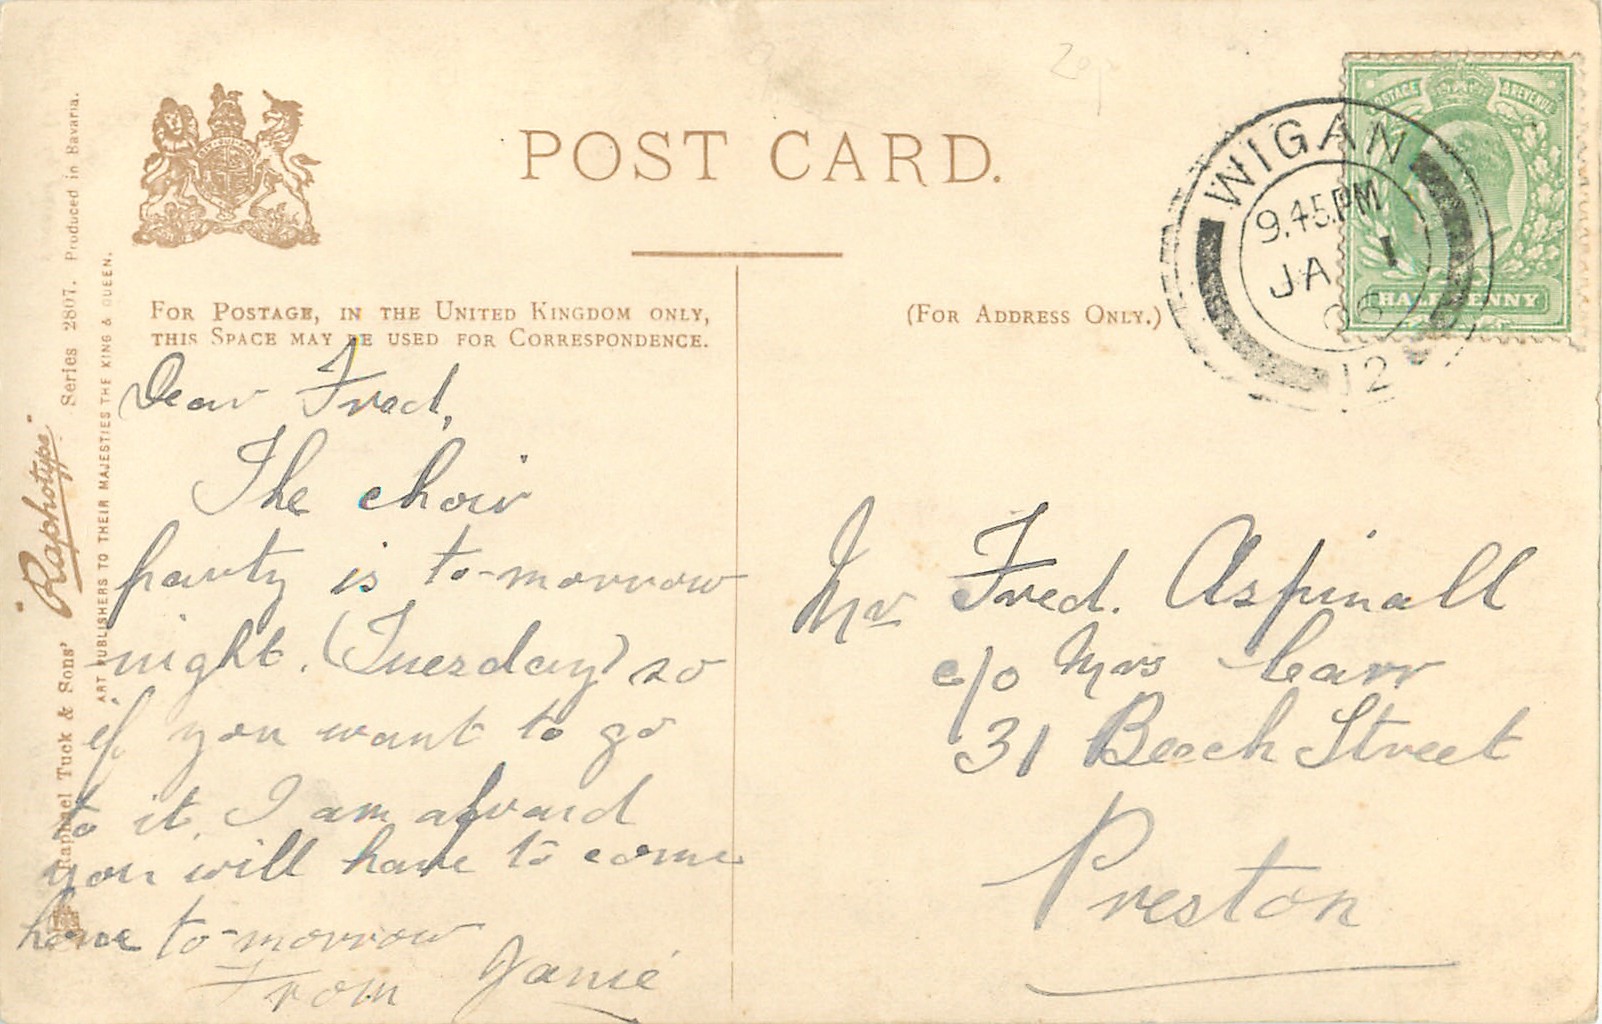 POST CARD.
FOR POSTAGE, IN THE UNITED KINGDOM ONLY,
THIS SPACE MAY BE USED FOR CORRESPONDENCE.
(FOR ADDRESS ONLY.)
WIGAN
9.45PM
JA 1
06
12
POSTAGE & REVENUE
HALFPENNY
Dear Fred,
The choir
party is to-morrow
night. (Tuesday) so
if you want to go
to it. I am afraid
you will have to come
home to-morrow
From Janie
Mr Fred. Aspinall
c/o Mrs Carr
31 Beech Street
Preston
Raphael Tuck & Sons' "Raphotype" Series 2807. Produced in Bavaria.
ART PUBLISHERS TO THEIR MAJESTIES THE KING & QUEEN.